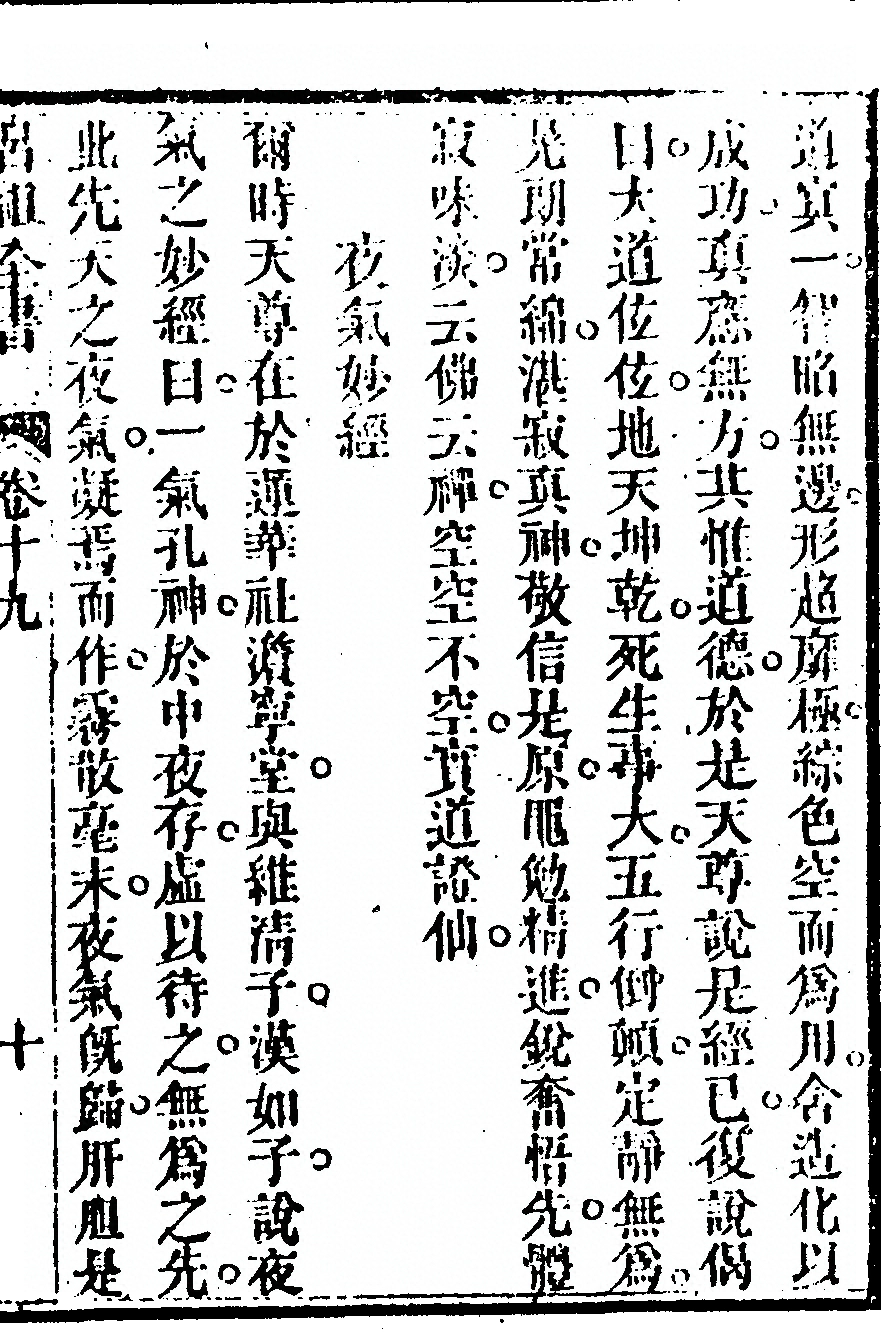 道寘一智昭無邊形超廓極綜色空而爲用含造化以
成功真應無方其惟道德於是天尊說是經已復說偈
曰大道位位地天坤乾死生事大五行倒顛定靜無爲
是朗常綿湛寂真神敬信是原黽勉精進銳奮悟先體
寂味淡云佛云禪空空不空實道證仙
夜氣妙經
爾時天尊在於蓮華社澹寧堂與維清子漢如子說夜
氣之妙經曰一氣孔神於中夜存虛以待之無爲之先
此先天之夜氣凝焉而作霧散毫末夜氣旣歸肝胆是
呂祖全書 卷十九 十